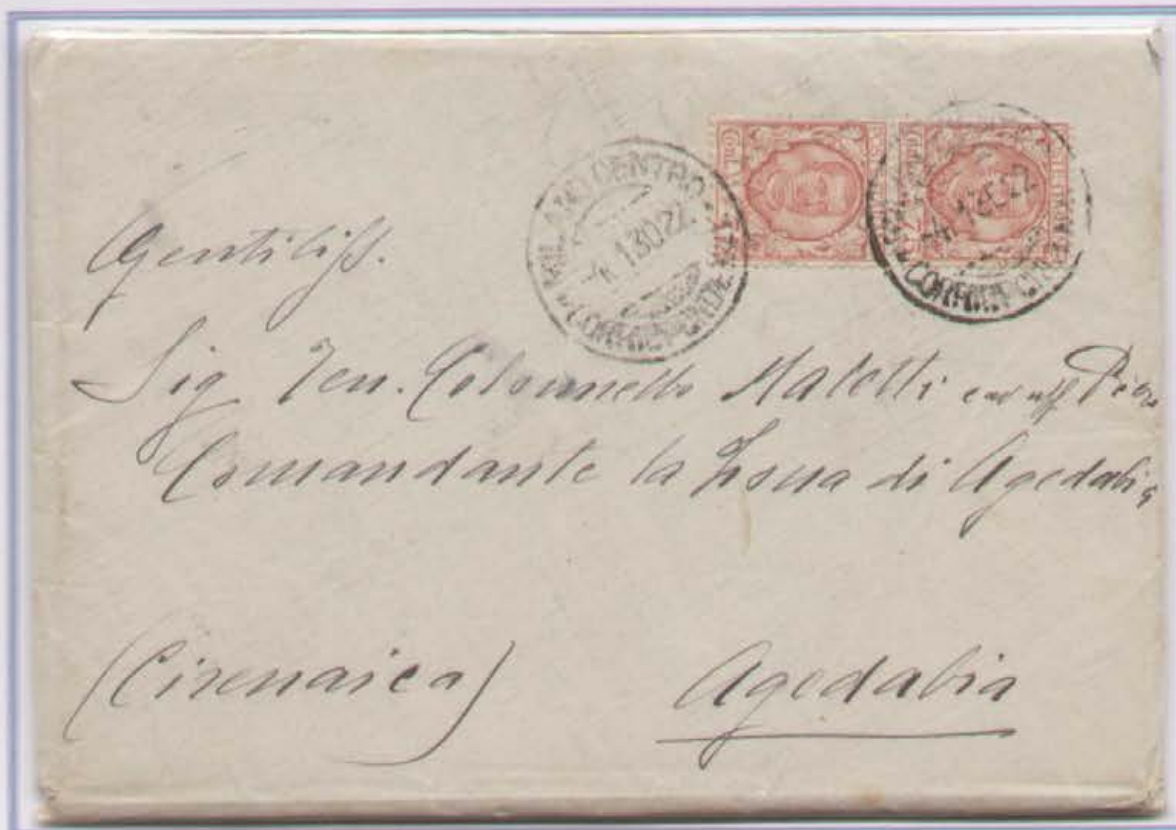 MILANO CENTRO
1.1.30 22
CORRISPONDENZE
Gentiliss.
Sig Ten. Colonnello Maletti cav uff Pietro
Comandante la Zona di Agedabia
(Cirenaica)
Agedabia